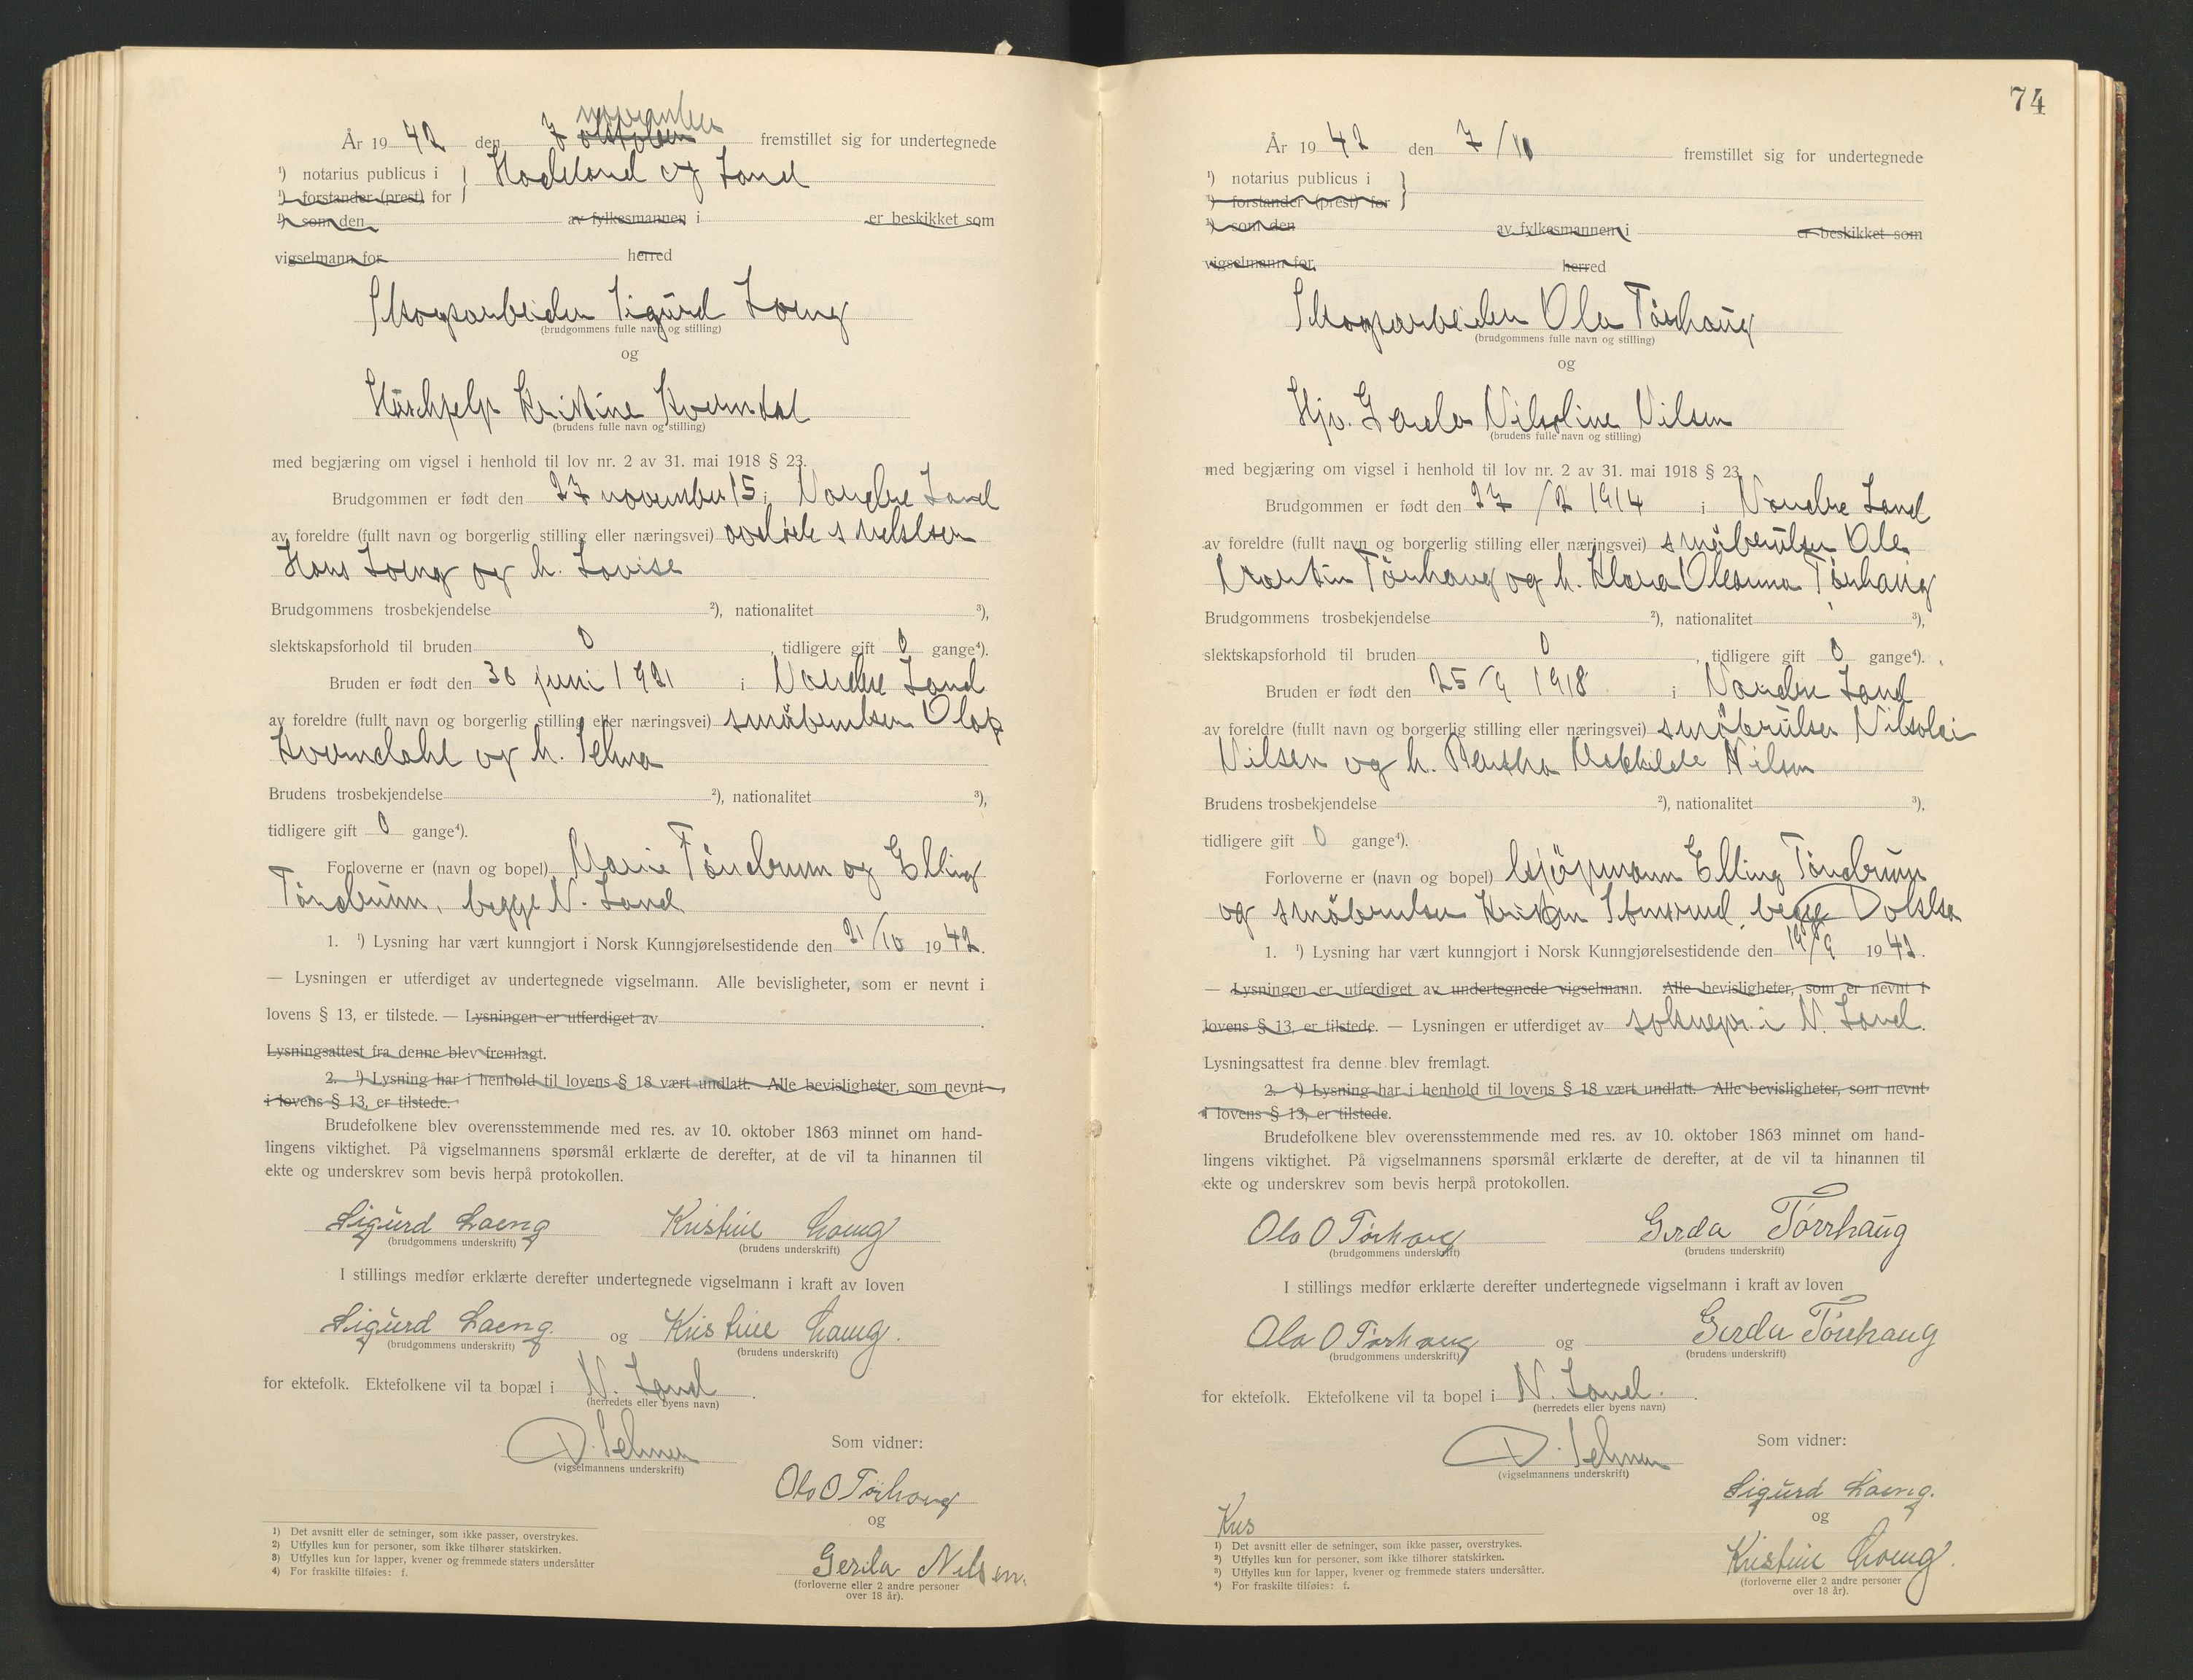 År 19 42 den 7 oktober november fremstillet sig for undertegnede
1) notarius publicus i } Hadeland og Land
1) forstander (prest) for
1) som den av fylkesmannen i er beskikket som
vigselmann for herred
Skogsarbeider Sigurd Loeng
(brudgommens fulle navn og stilling)
og
Hushjelp Kristine Kverndal
(brudens fulle navn og stilling)
med begjæring om vigsel i henhold til lov nr. 2 av 31. mai 1918 § 23.
Brudgommen er født den 27 november 15 i Nordre Land
av foreldre (fullt navn og borgerlig stilling eller næringsvei) avdøde
Hans Loeng og h. Lovise
Brudgommens trosbekjendelse 2), nationalitet 3),
slektskapsforhold til bruden 0, tidligere gift 0 gange4).
Bruden er født den 30 juni 1921 i Nordre Land
av foreldre (fullt navn og borgerlig stilling eller næringsvei) småbruker Olaf
Kverndahl og h. Selma
Brudens trosbekjendelse 2), nationalitet 3),
tidligere gift 0 gange4).
Forloverne er (navn og bopel) Marie Tøndrum og Elling
Tøndrum, begge N. Land
1. 1) Lysning har vært kunngjort i Norsk Kunngjørelsestidende den 21/10 19 42.
— Lysningen er utferdiget av undertegnede vigselmann. Alle bevisligheter, som er nevnt i
lovens § 13, er tilstede. — Lysningen er utferdiget av .
Lysningsattest fra denne blev fremlagt.
2. 1) Lysning har i henhold til lovens § 18 vært undlatt. Alle bevisligheter, som nevnt
i lovens § 13, er tilstede.
Brudefolkene blev overensstemmende med res. av 10. oktober 1863 minnet om hand-
lingens viktighet. På vigselmannens spørsmål erklærte de derefter, at de vil ta hinannen til
ekte og underskrev som bevis herpå protokollen.
Sigurd Loeng Kristine Loeng
(brudgommens underskrift) (brudens underskrift)
I stillings medfør erklærte derefter undertegnede vigselmann i kraft av loven
Sigurd Loeng. og Kristine Loeng.
(brudgommens underskrift) (brudens underskrift)
for ektefolk. Ektefolkene vil ta bopæl i N. Land .
(herredets eller byens navn)
D. Selmer
(vigselmannens underskrift)
Som vidner:
Ola O Tørhaug
og
Gerda Nilsen.
(forloverne eller 2 andre personer
over 18 år).
1) Det avsnitt eller de setninger, som ikke passer, overstrykes.
2) Utfylles kun for personer, som ikke tilhører statskirken.
3) Utfylles kun for lapper, kvener og fremmede staters undersåtter
4) For fraskilte tilføies: f.
74
År 19 42 den 7/11 fremstillet sig for undertegnede
1) notarius publicus i }
1) forstander (prest) for
1) som den av fylkesmannen i er beskikket som
vigselmann for herred
Skogsarbeider Ola Tørhaug
(brudgommens fulle navn og stilling)
og
Hjv. Gerda Nilsoline Nilsen
(brudens fulle navn og stilling)
med begjæring om vigsel i henhold til lov nr. 2 av 31. mai 1918 § 23
Brudgommen er født den 27/2 1914 i Nordre Land
av foreldre (fullt navn og borgerlig stilling eller næringsvei) småbruker Ole
Martin Tørhaug og h. Klara Oleanna Tørhaug
Brudgommens trosbekjendelse 2), nationalitet 3),
slektskapsforhold til bruden 0, tidligere gift 0 gange4).
Bruden er født den 25/9 1918 i Nordre Land
av foreldre (fullt navn og borgerlig stilling eller næringsvei) småbruker Nikolai
Nilsen og h. Bertha Mathilde Nilsen
Brudens trosbekjendelse 2), nationalitet 3),
tidligere gift 0 gange4).
Forloverne er (navn og bopel) kjøpmann Elling Tøndrum
og småbruker begge Dokka
1. 1) Lysning har vært kunngjort i Norsk Kunngjørelsestidende den 19/9 19 42.
— Lysningen er utferdiget av undertegnede vigselmann. Alle bevisligheter, som er nevnt i
lovens § 13, er tilstede. — Lysningen er utferdiget av soknepr. i N. Land.
Lysningsattest fra denne blev fremlagt.
2. 1) Lysning har i henhold til lovens § 18 vært undlatt. Alle bevisligheter, som nevnt
i lovens § 13, er tilstede.
Brudefolkene blev overensstemmende med res. av 10. oktober 1863 minnet om hand-
lingens viktighet. På vigselmannens spørsmål erklærte de derefter, at de vil ta hinannen til
ekte og underskrev som bevis herpå protokollen.
Ola O Tørhaug Gerda Tørrhaug
(brudgommens underskrift) (brudens underskrift)
I stillings medfør erklærte derefter undertegnede vigselmann i kraft av loven
Ola O Tørhaug og Gerda Tørrhaug
(brudgommens underskrift) (brudens underskrift)
for ektefolk. Ektefolkene vil ta bopel i N. Land. .
(herredets eller byens navn)
D. Selmer
(vigselmannens underskrift)
Som vidner:
Sigurd Loeng.
og
Kristine Loeng.
(forloverne eller 2 andre personer
over 18 år).
Kris
1) Det avsnitt eller de setninger, som ikke passer, overstrykes.
2) Utfylles kun for personer, som ikke tilhører statskirken.
3) Utfylles kun for lapper, kvener og fremmede staters undersåtter.
4) For fraskilte tilføies: f.